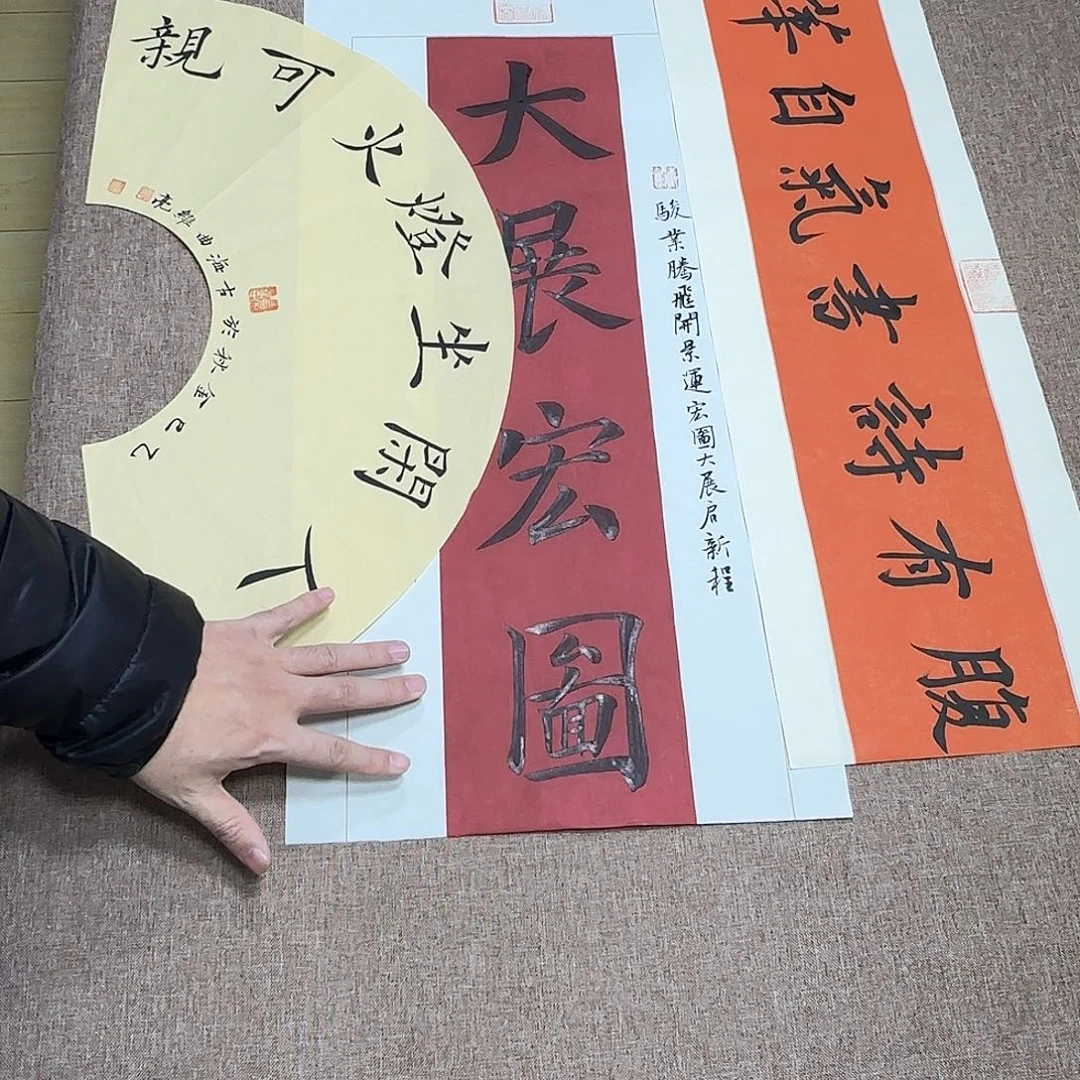 人閑坐燈火可親
乙巳金秋於古海曲維亮
大展宏圖
駿業騰飛開景運宏圖大展启新程
腹有詩書氣自華